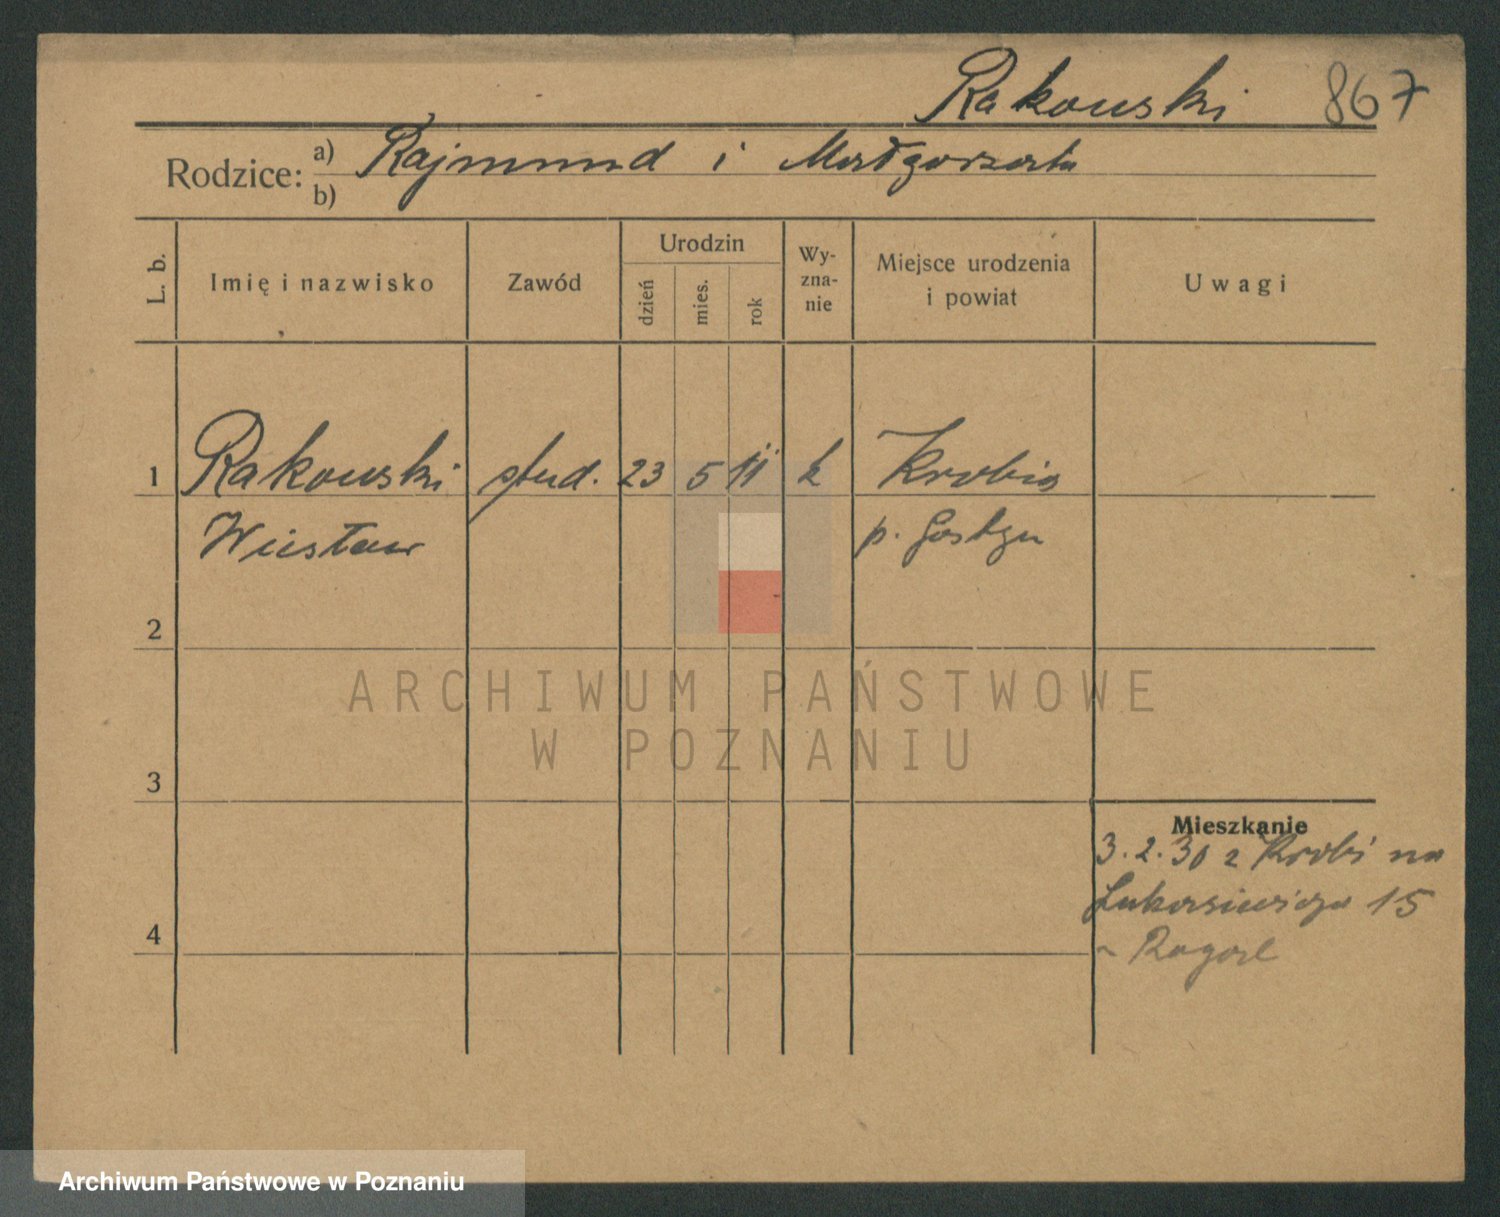 Rakowski 867
Rodzice: a) Rajmund i Małgorzata
b)
L. b. Imię i nazwisko Zawód Urodzin dzień mies. rok Wy-zna-nie Miejsce urodzenia i powiat Uwagi
1 Rakowski stud. 23 5 11 k Krobia
Wiesław p. Gostyń
2
ARCHIWUM PAŃSTWOWE
W POZNANIU
3
Mieszkanie
3.2.30 z Krobi na
Łukasiewicza 15
4
Archiwum Państwowe w Poznaniu